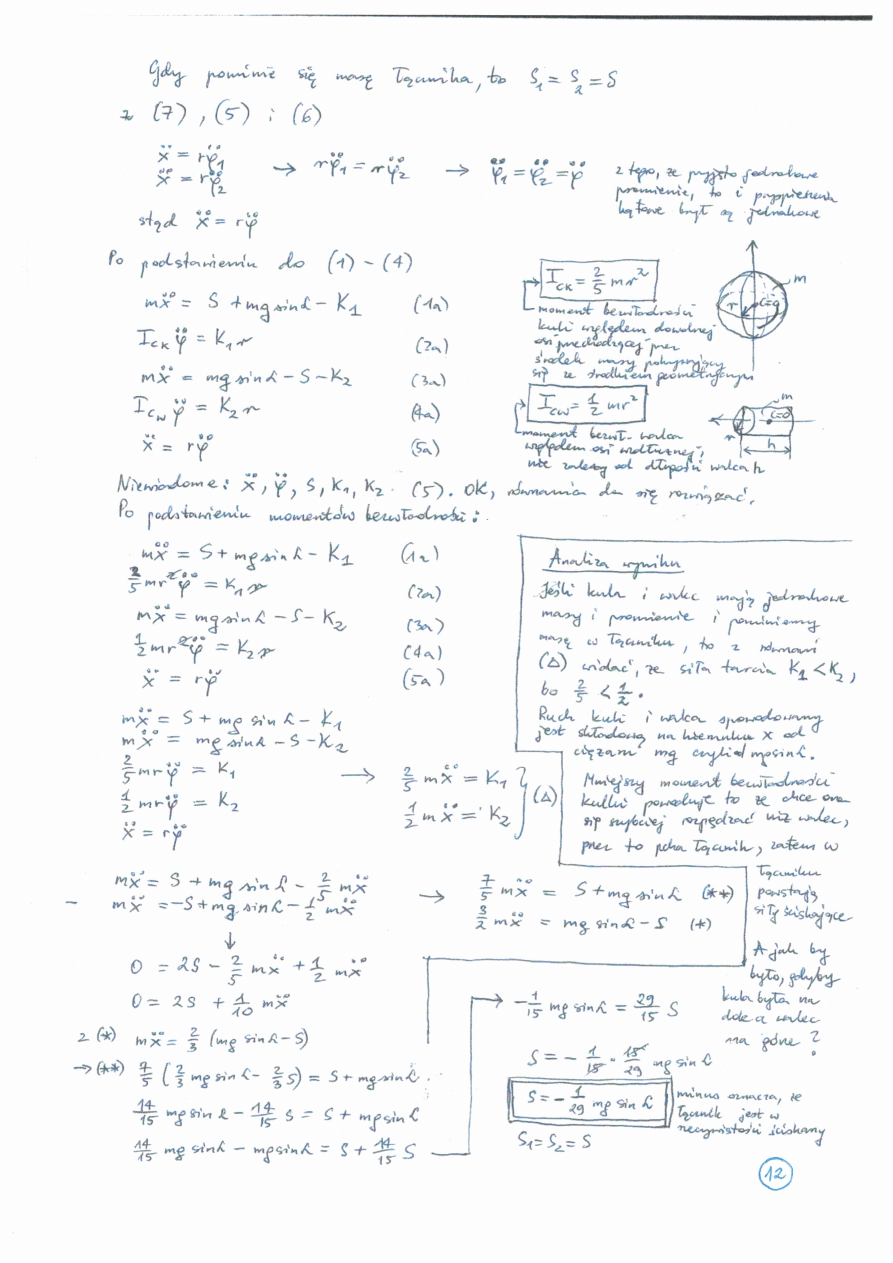 Gdy pominie się masę łącznika, to S₁ = S₂ = S
z (7), (5) i (6)
ẍ = rφ̈₁
ẍ = rφ̈₂
→ rφ̈₁ = rφ̈₂ → φ̈₁ = φ̈₂ = φ̈
z tego, że przyjęto jednakowe
promienie, to i przyspieszenia
kątowe brył są jednakowe
stąd ẍ = rφ̈
Po podstawieniu do (1) – (4)
mẍ = S + mg sinα – K₁ (1a)
I_CK φ̈ = K₁ r (2a)
mẍ = mg sinα – S – K₂ (3a)
I_CW φ̈ = K₂ r (4a)
ẍ = rφ̈ (5a)
I_CK = 2/5 mr²
moment bezwładności
kuli względem dowolnej
osi przechodzącej przez
środek masy pokrywający
się ze środkiem geometrycznym
m
r
C=O
I_CW = 1/2 mr²
moment bezwł. walca
względem osi wzdłużnej,
nie zależy od długości walca h
m
C=O
r
h
Niewiadome: ẍ, φ̈, S, K₁, K₂. (5). OK, równania da się rozwiązać.
Po podstawieniu momentów bezwładności:
mẍ = S + mg sinα – K₁ (1a)
2/5 mr²φ̈ = K₁ r (2a)
mẍ = mg sinα – S – K₂ (3a)
1/2 mr²φ̈ = K₂ r (4a)
ẍ = rφ̈ (5a)
mẍ = S + mg sinα – K₁
mẍ = mg sinα – S – K₂
2/5 mrφ̈ = K₁
1/2 mrφ̈ = K₂
ẍ = rφ̈
→ 2/5 mẍ = K₁
1/2 mẍ = K₂
} (Δ)
Analiza wyniku
Jeśli kula i walec mają jednakowe
masy i promienie i pominiemy
masę w łączniku, to z równań
(Δ) widać, że siła tarcia K₁ < K₂,
bo 2/5 < 1/2.
Ruch kuli i walca spowodowany
jest składową na kierunku x od
ciężaru mg czyli mg sinα.
Mniejszy moment bezwładności
kulki powoduje to że chce ona
się szybciej rozpędzać niż walec,
przez to pcha łącznik, zatem w
łączniku
powstają
siły ściskające
A jak by
było, gdyby
kula była na
dole a walec
na górze?
mẍ = S + mg sinα – 2/5 mẍ
– mẍ = –S + mg sinα – 1/2 mẍ
→ 7/5 mẍ = S + mg sinα (**)
3/2 mẍ = mg sinα – S (*)
↓
0 = 2S – 2/5 mẍ + 1/2 mẍ
0 = 2S + 1/10 mẍ
z (*) mẍ = 2/3 (mg sinα – S)
→ (**) 7/5 (2/3 mg sinα – 2/3 S) = S + mg sinα
14/15 mg sinα – 14/15 S = S + mg sinα
14/15 mg sinα – mg sinα = S + 14/15 S
→ –1/15 mg sinα = 29/15 S
S = – 1/15 · 15/29 mg sinα
S = – 1/29 mg sinα
minus oznacza, że
łącznik jest w
rzeczywistości ściskany
S₁ = S₂ = S
12